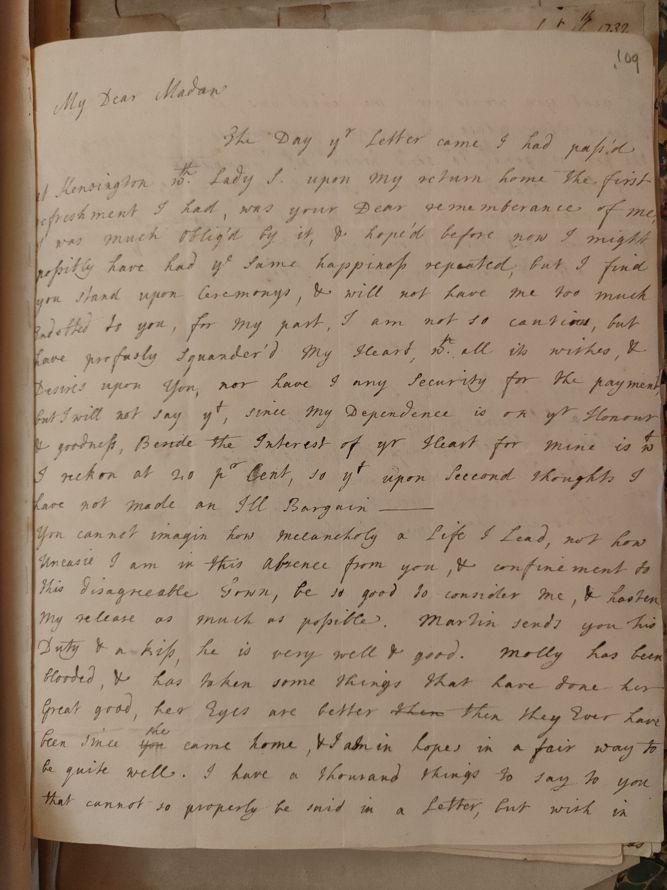 109
My Dear Madan
The Day yr Letter came I had pass'd
at Kensington wth. Lady S. upon my return home the first
refreshment I had, was your Dear rememberance of me,
I was much Oblig'd by it, & hope'd before now I might
possibly have had ye same happiness repeated, but I find
you stand upon Ceremonys, & will not have me too much
Indetted to you, for my part, I am not so cautious, but
have profusly Squander'd My Heart, wth. all its wishes, &
Desires upon You, nor have I any Security for the payment,
but I will not say yt, since My Dependence is on yr Honour
& goodness, Beside the Interest of yr Heart for mine is wt
I reckon at 20 pr Cent, so yt upon Seccond thoughts I
have not made an Ill Bargain —
You cannot imagin how melancholy a Life I Lead, not how
Uneasie I am in this Absence from you, & confinement to
this disagreeable Town, be so good to consider me, & hasten
My release as much as possible. Martin sends you his
Duty & a kiss, he is very well & good. Molly has been
blooded, & has taken some things that have done her
Great good, her Eyes are better then then they Ever have
been since you she came home, & I am in hopes in a fair way to
be quite well. I have a thousand things to say to you
that cannot so properly be said in a Letter, but wish in